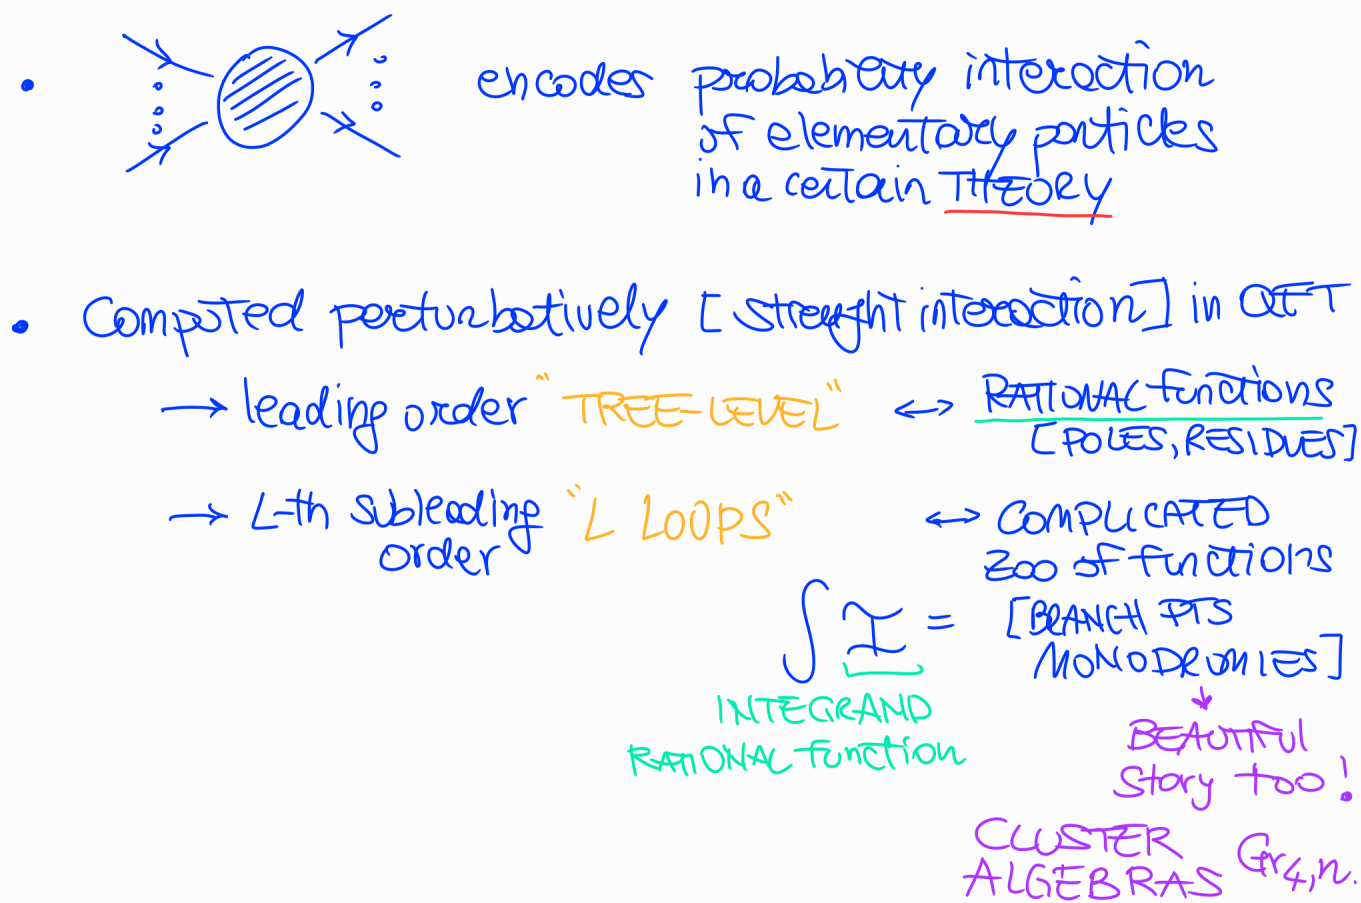 encodes probability interaction
of elementary particles
in a certain THEORY
Computed perturbatively [strenght interaction] in QFT
→ leading order "TREE-LEVEL" ↔ RATIONAL functions
[POLES, RESIDUES]
→ L-th subleading "L LOOPS" ↔ COMPLICATED
order zoo of functions
∫ I = [BRANCH PTS
MONODROMIES]
INTEGRAND
RATIONAL function
BEAUTIFUL
story too!
CLUSTER
ALGEBRAS Gr4,n.